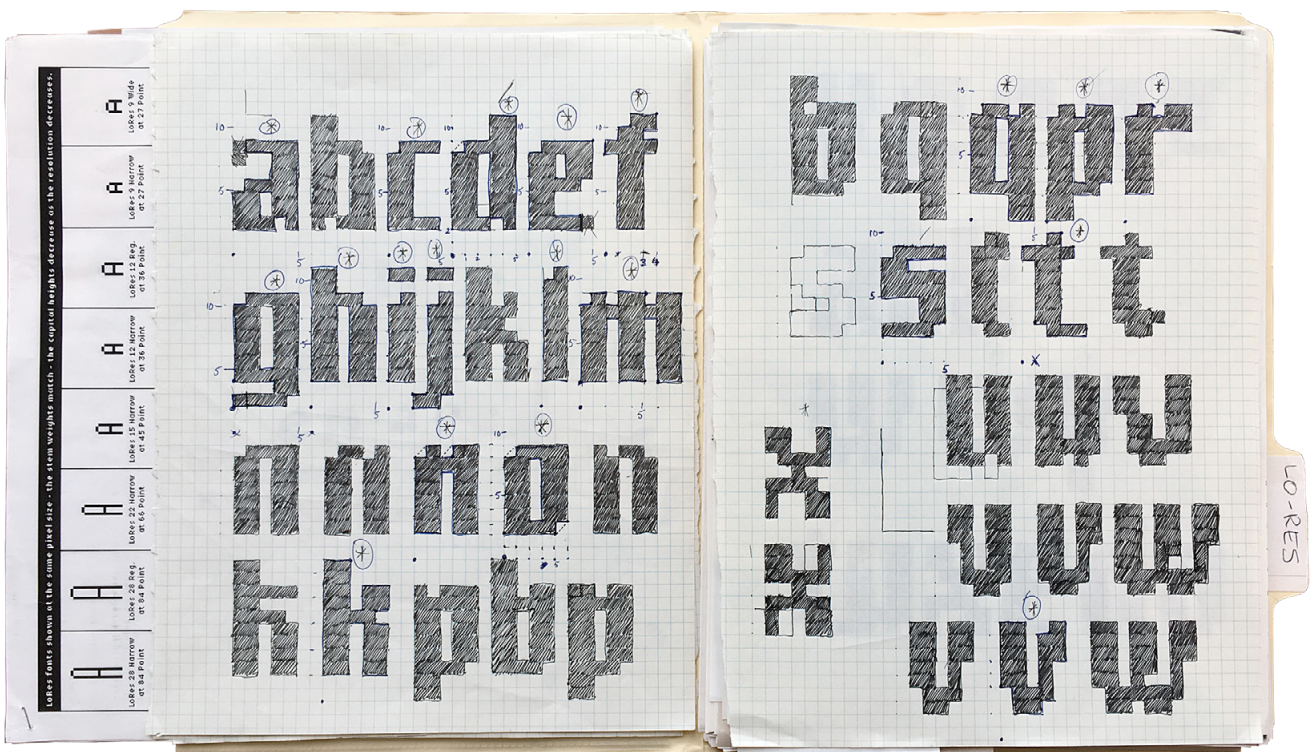 LoRes fonts shown at the same pixel size - the stem weights match - the capital heights decrease as the resolution decreases.
A A A A A A A A
LoRes 28 Narrow
at 84 Point
LoRes 28 Reg.
at 84 Point
LoRes 22 Narrow
at 66 Point
LoRes 15 Narrow
at 45 Point
LoRes 12 Narrow
at 36 Point
LoRes 12 Reg.
at 36 Point
LoRes 9 Narrow
at 27 Point
LoRes 9 Wide
at 27 Point
a b c d e f
g h i j k l m
n n n o n
k k p b p
b q q p r
s s t t t
u u v
x v v w
x v v w
LO-RES